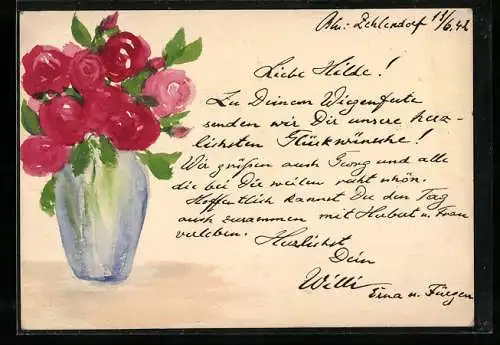 Bln.-Zehlendorf 11/6.42
Liebe Hilde!
Zu Deinem Wiegenfeste
senden wir Dir unsere herz-
lichsten Glückwünsche!
Wir grüßen auch Georg und alle
die bei Dir weilen recht schön.
Hoffentlich kannst Du den Tag
auch zusammen mit Hubert u. Frau
verleben. Herzlichst
Dein
Willi
Erna u. Jürgen